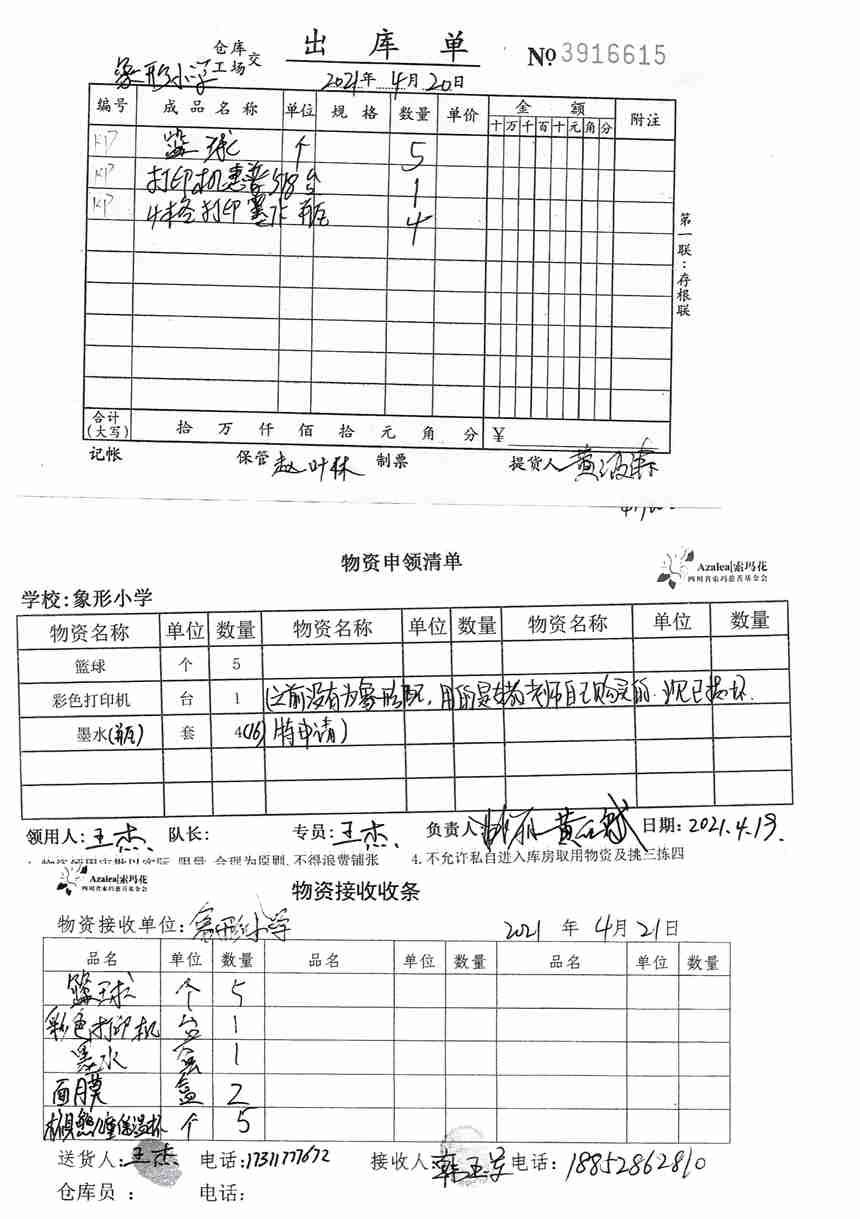 出库单
仓库
工场 交
№ 3916615
象形小学
2021年 4月 20日
编号 成品名称 单位 规格 数量 单价 金额 附注
十 万 千 百 十 元 角 分
篮球 个 5
打印机惠普518 台 1
打印墨水 瓶 4
第一联:存根联
合计(大写) 拾 万 仟 佰 拾 元 角 分 ¥
记帐 保管 赵叶林 制票 提货人
物资申领清单
Azalea|索玛花
四川省索玛慈善基金会
学校:象形小学
物资名称 单位 数量 物资名称 单位 数量 物资名称 单位 数量
篮球 个 5
彩色打印机 台 1 (之前没有为象形配,用的是支教老师自己购买的.现已损坏.
墨水(瓶) 套 4(16) 特申请)
领用人:王杰 队长: 专员:王杰 负责人: 日期:2021.4.19.
合理为原则,不得浪费铺张 4.不允许私自进入库房取用物资及挑三拣四
Azalea|索玛花
四川省索玛慈善基金会
物资接收收条
物资接收单位:象形小学 2021 年 4月 21日
品名 单位 数量 品名 单位 数量 品名 单位 数量
篮球 个 5
彩色打印机 台 1
墨水 套 1
面膜 盒 2
保温杯 个 5
送货人:王杰 电话:17311777672 接收人: 电话:18852862810
仓库员: 电话: